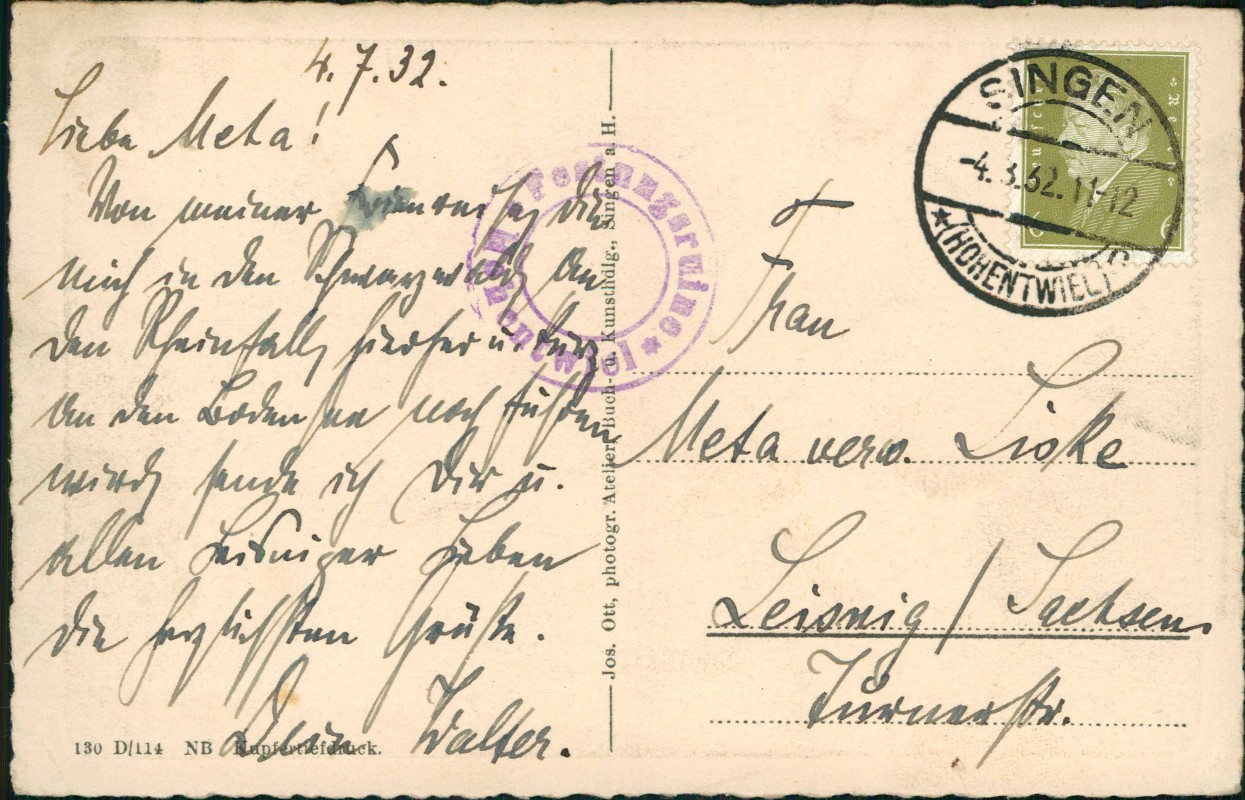 4.7.32.
Liebe Meta!
Von meiner Ferienreise, die
mich in den Schwarzwald, an
den Rheinfall, hierher u. kurz
an den Bodensee noch führen
wird, sende ich Dir u.
allen Leisniger Lieben
die herzlichsten Grüße.
Dein Walter.
130 D/114 NB Kupfertiefdruck.
Jos. Ott, photogr. Atelier, Buch- u. Kunsthdlg., Singen a. H.
Festungsruine
Hohentwiel
SINGEN
11-12
(HOHENTWIEL)
Frau
Meta verw. Liske
Leisnig / Sachsen.
Turnerstr.